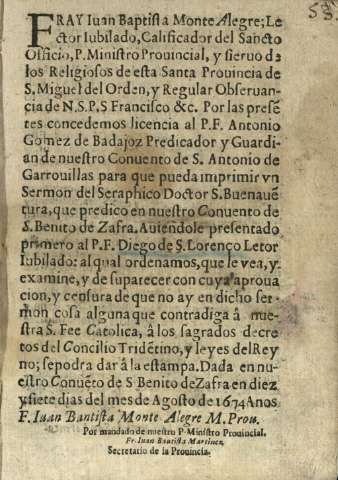 FRAY Iuan Baptista Monte Alegre; Le
ctor Iubilado, Calificador del Sancto
Officio, P. Ministro Prouincial, y sieruo de
los Religiosos de esta Santa Prouincia de
S, Miguel del Orden, y Regular Obseruan-
cia de N.S.P.S Francisco &c. Por las presẽ
tes concedemos licencia al P.F. Antonio
Gomez de Badajoz Predicador y Guardi-
an de nuestro Conuento de S. Antonio de
Garrouillas para que pueda imprimir vn
Sermon del Seraphico Doctor S. Buenauẽ
tura, que predico en nuestro Conuento de
S. Benito de Zafra. Auiẽndole presentado
primero al P.F. Diego de S. Lorenço Letor
Iubilado: al qual ordenamos, que le vea, y
examine, y de su parecer con cuya aproua
cion, y censura de que no ay en dicho ser-
mon cosa alguna que contradiga â nue-
stra S. Fee Catolica, â los sagrados decre
tos del Concilio Tridẽtino, y leyes del Rey
no; se podra dar â la estampa. Dada en nu-
estro Conuẽto de S Benito de Zafra en diez
y siete dias del mes de Agosto de 1674 Anos
F. Iuan Bantista Monte Alegre M. Prou.
Por mandado de nuestro P. Ministro Prouincial.
Fr. Iuan Bautista Martinez.
Secretario de la Prouincia.